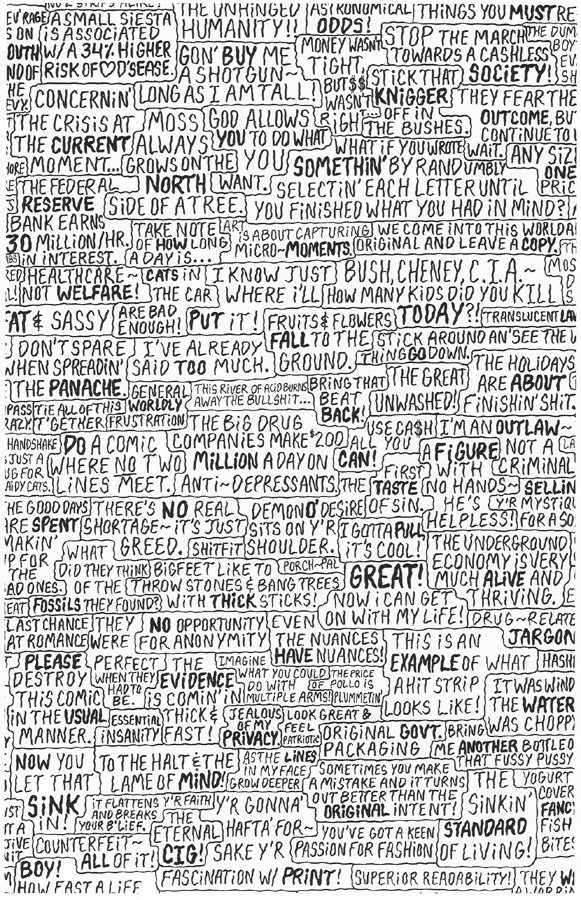 A SMALL SIESTA
IS ASSOCIATED
W/ A 34% HIGHER
RISK OF ♡ D'SEASE.
THE UNHINGED
HUMANITY!!
ASTRONOMICAL
ODDS!
THINGS YOU MUST RE
GON' BUY ME
A SHOTGUN~
LONG AS I AM TALL!
MONEY WASN'T
TIGHT,
BUT $$
WASN'T
RIGHT...
STOP THE MARCH
TOWARDS A CASHLESS
SOCIETY!
STICK THAT
KNIGGER
OFF IN
THE BUSHES.
THEY FEAR THE
OUTCOME, BU
CONTINUE TO L
CONCERNIN'
THE CRISIS AT
THE CURRENT
MOMENT...
MOSS
ALWAYS
GROWS ON THE
NORTH
SIDE OF A TREE.
GOD ALLOWS
YOU TO DO WHAT
YOU
WANT.
WHAT IF YOU WROTE
SOMETHIN' BY RANDUMBLY
SELECTIN' EACH LETTER UNTIL
YOU FINISHED WHAT YOU HAD IN MIND?
WAIT.
ANY SIZ
ONE
PRIC
THE FEDERAL
RESERVE
BANK EARNS
30 MILLION/HR.
IN INTEREST.
TAKE NOTE
OF HOW LONG
A DAY IS...
ART
IS ABOUT CAPTURING
MICRO~MOMENTS.
WE COME INTO THIS WORLD A
ORIGINAL AND LEAVE A COPY.
HEALTHCARE~
NOT WELFARE!
CATS IN
THE CAR
ARE BAD
ENOUGH!
I KNOW JUST
WHERE I'LL
PUT IT!
BUSH, CHENEY, C.I.A.~
HOW MANY KIDS DID YOU KILL
TODAY?!
FAT & SASSY
FRUITS & FLOWERS
FALL TO THE
GROUND.
TRANSLUCENT LAW
STICK AROUND AN' SEE THE W
THING GO DOWN.
DON'T SPARE
WHEN SPREADIN'
THE PANACHE.
I'VE ALREADY
SAID TOO MUCH.
THE HOLIDAYS
ARE ABOUT
FINISHIN' SHIT.
GENERAL
WORLDLY
FRUSTRATION
THIS RIVER OF ACID BURNS
AWAY THE BULLSHIT...
BRING THAT
BEAT
BACK!
THE GREAT
UNWASHED!
TIE ALL OF THIS
T'GETHER
THE BIG DRUG
COMPANIES MAKE $200
MILLION A DAY ON
ANTI~DEPRESSANTS.
USE CA$H
ALL YOU
CAN!
I'M AN OUTLAW~
NOT A
CRIMINAL
HANDSHAKE
DO A COMIC
WHERE NO TWO
LINES MEET.
FIRST
THE TASTE
OF SIN.
A FIGURE
WITH
NO HANDS~
HE'S
HELPLESS!
SELLIN
Y'R MYSTIQ
FOR A SO
THE GOOD DAYS
ARE SPENT
THERE'S NO REAL
SHORTAGE~IT'S JUST
GREED.
DEMON O' DESIRE
SITS ON Y'R
SHOULDER.
I GOTTA PULL
IT'S COOL!
THE UNDERGROUND
ECONOMY IS VERY
MUCH ALIVE AND
THRIVING.
WHAT
DID THEY THINK
OF THE
FOSSILS THEY FOUND?
SHITFIT
BIGFEET LIKE TO
THROW STONES & BANG TREES
WITH THICK STICKS!
PORCH~PAL
GREAT!
NOW I CAN GET
ON WITH MY LIFE!
LAST CHANCE
AT ROMANCE
THEY
WERE
NO OPPORTUNITY
FOR ANONYMITY
EVEN
THE NUANCES
HAVE NUANCES!
THIS IS AN
EXAMPLE OF WHAT
A HIT STRIP
LOOKS LIKE!
DRUG~RELATE
JARGON
PLEASE
DESTROY
THIS COMIC
IN THE USUAL
MANNER.
PERFECT
WHEN THEY
HAD TO
BE.
THE
EVIDENCE
IS COMIN' IN
THICK &
FAST!
IMAGINE
WHAT YOU COULD
DO WITH
MULTIPLE ARMS!
THE PRICE
OF POLLO IS
PLUMMETIN'
IT WAS WIND
THE WATER
WAS CHOPP
ESSENTIAL
INSANITY
JEALOUS
OF MY
PRIVACY.
LOOK GREAT &
FEEL
PATRIOTIC
ORIGINAL GOVT.
PACKAGING
BRING
ME ANOTHER BOTTLE O
THAT FUSSY PUSSY
NOW YOU
LET THAT
SINK
IN!
TO THE HALT & THE
LAME OF MIND!
AS THE LINES
IN MY FACE
GROW DEEPER
SOMETIMES YOU MAKE
A MISTAKE AND IT TURNS
OUT BETTER THAN THE
ORIGINAL INTENT!
THE
SINKIN'
STANDARD
OF LIVING!
YOGURT
COVER
FANC
FISH
BITE
IT FLATTENS Y'R FAITH
AND BREAKS
YOUR B'LIEF.
THE
ETERNAL
CIG!
Y'R GONNA'
HAFTA' FOR~
SAKE Y'R
FASCINATION W/ PRINT!
YOU'VE GOT A KEEN
PASSION FOR FASHION
COUNTERFEIT~
ALL OF IT!
BOY!
HOW FAST A LIFE
SUPERIOR READABILITY!
THEY W